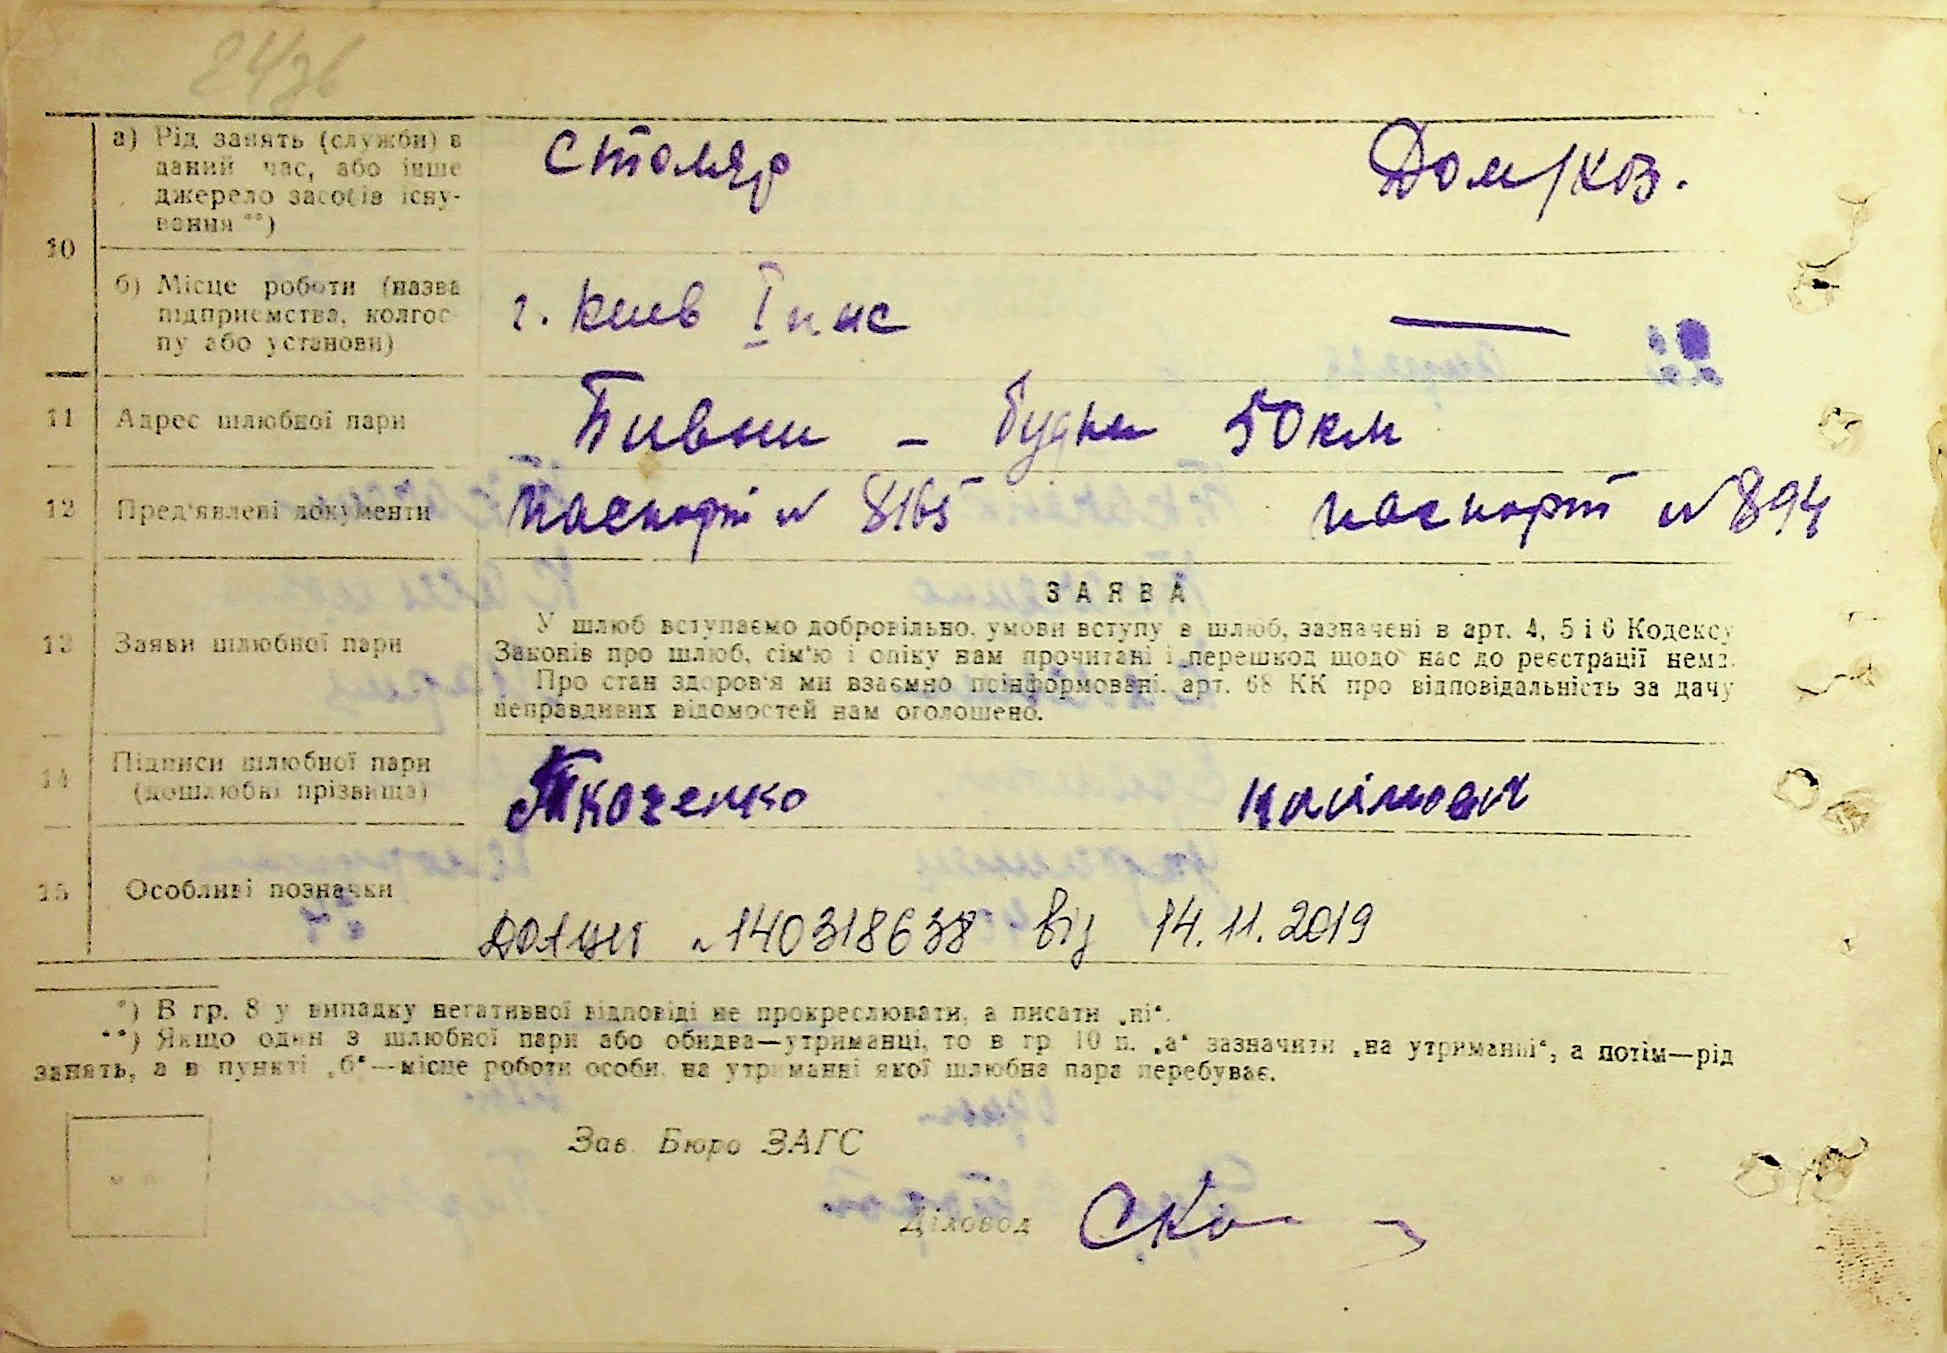 10
а) Рід занять (служби) в
даний час, або інше
джерело засобів існу-
вання **)
столяр
Дом/хоз.
б) Місце роботи (назва
підприємства, колгос-
пу або установи)
г. Киев I
—
11
Адрес шлюбної пари
будка 50 км
12
Пред'явлені документи
паспорт № 8165
паспорт № 894
13
Заяви шлюбної пари
ЗАЯВА
У шлюб вступаємо добровільно, умови вступу в шлюб, зазначені в арт. 4, 5 і 6 Кодексу
Законів про шлюб, сім'ю і опіку нам прочитані і перешкод щодо нас до реєстрації нема.
Про стан здоров'я ми взаємно поінформовані. арт. 68 КК про відповідальність за дачу
неправдивих відомостей нам оголошено.
14
Підписи шлюбної пари
(дошлюбні прізвища)
Ткаченко
15
Особливі позначки
№ 140318638 від 14.11.2019
*) В гр. 8 у випадку негативної відповіді не прокреслювати, а писати „ні“.
**) Якщо один з шлюбної пари або обидва—утриманці, то в гр. 10 п. „а“ зазначити „на утриманні“, а потім—рід
занять, а в пункті „б“—місце роботи особи, на утриманні якої шлюбна пара перебуває.
Зав. Бюро ЗАГС
М. П.
Діловод